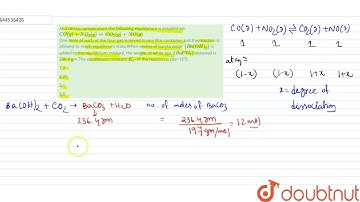 644536426
At a certain temperature the following equilibrium is established
CO(g) + NO₂(g) ⇌ CO₂(g) + NO(g)
One mole of each of the four gas is mixed in one litre container and the reaction is
allowed to reach equilibrium state. When excess of baryta water [Ba(OH)₂] is
added to the equilibrium mixture, the weight of white ppt. (BaCO₃) obtained is
236.4 gm. The equilibrium constant K_C of the reaction is (Ba=137)
CO(g) + NO₂(g) ⇌ CO₂(g) + NO(g)
1 1 1 1
at eqm
(1-x) (1-x) 1+x 1+x
x = degree of
dissociation
Ba(OH)₂ + CO₂ → BaCO₃ + H₂O no. of moles of BaCO₃
236.4 gm = 236.4 gm / 197 gm/mol = 1.2 mol
doubtnut